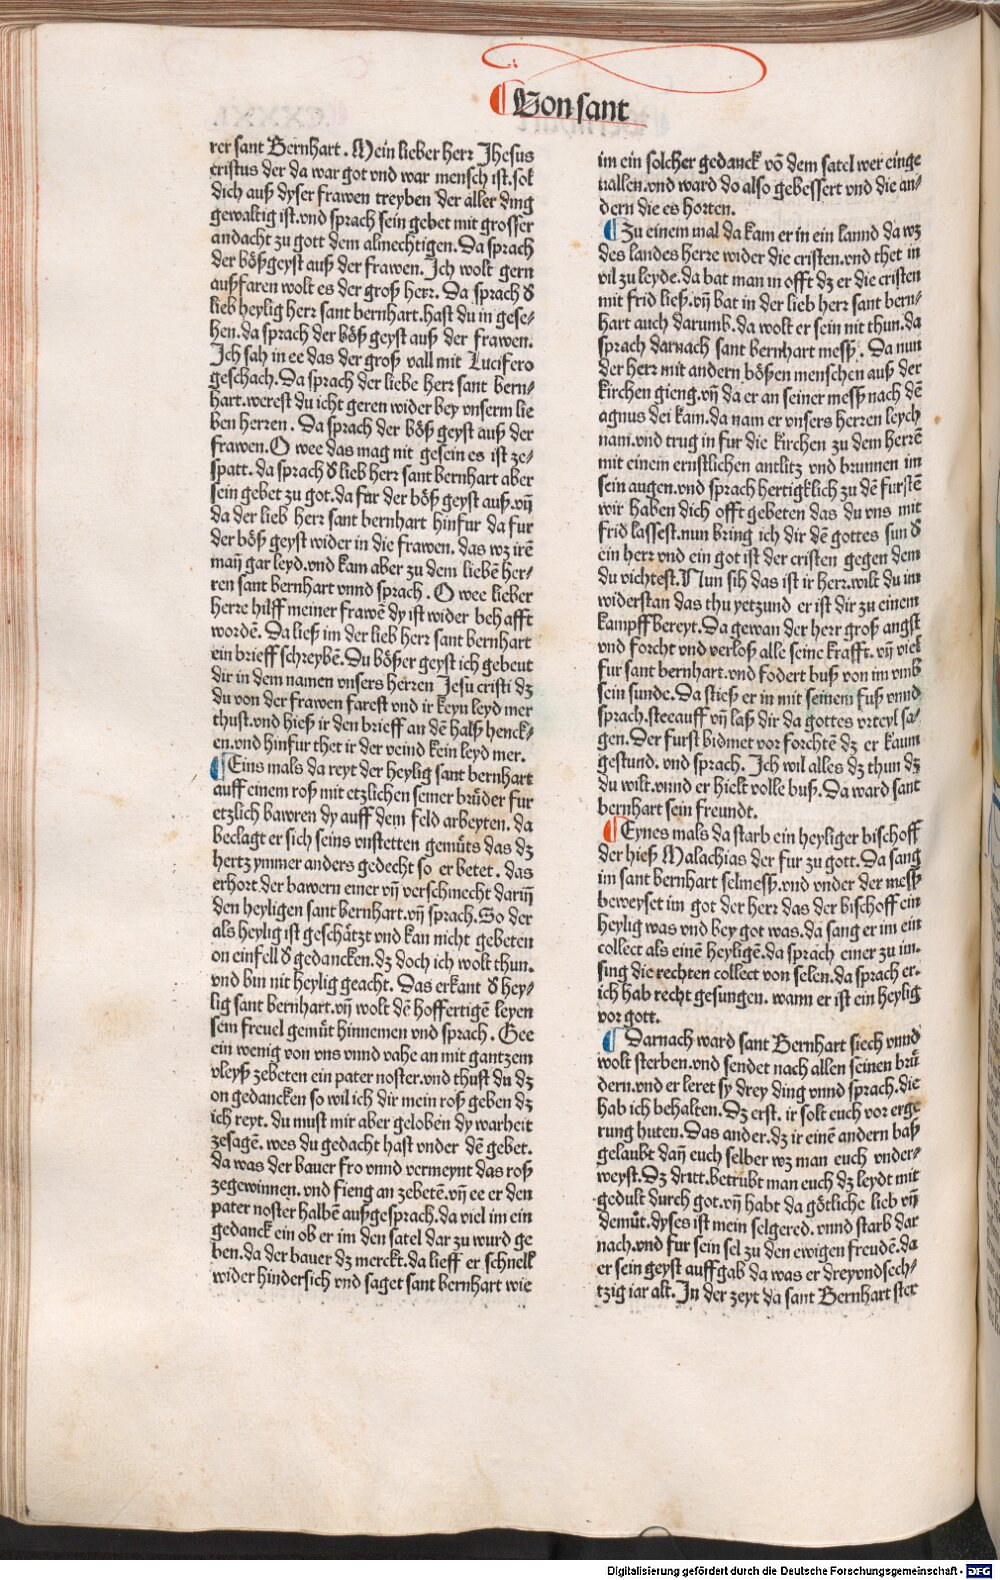 Von sant
rer sant Bernhart. Mein lieber herr Jhesus
cristus der da war got vnd war mensch ist. sol
dich auß dyser frawen treyben der aller ding
gewaltig ist. vnd sprach sein gebet mit grosser
andacht zu gott dem almechtigen. Da sprach
der bößgeyst auß der frawen. Ich wolt gern
außfaren wolt es der groß herr. Da sprach d̕
lieb heylig herr sant bernhart. hast du in gese⸗
hen. da sprach der böß geyst auß der frawen.
Ich sah in ee das der groß vall mit Lucifero
geschach. Da sprach der liebe herr sant bern⸗
hart. werest du icht geren wider bey vnserm lie
ben herren. Da sprach der böß geyst auß der
frawen. O wee das mag nit gesein es ist ze⸗
spatt. da sprach d̕ lieb herr sant bernhart aber
sein gebet zu got. da fur der böß geyst auß. vñ
da der lieb herr sant bernhart hinfur da fur
der böß geyst wider in die frawen. das wz irē
mañ gar leyd. vnd kam aber zu dem liebē her⸗
ren sant bernhart vnnd sprach. O wee lieber
herre hilff meiner frawē dy ist wider behafft
wordē. Da ließ im der lieb herr sant bernhart
ein brieff schreybē. Du bößer geyst ich gebeut
dir in dem namen vnsers herren Jesu cristi dz
du von der frawen farest vnd ir keyn leyd mer
thust. vnd hieß ir den brieff an dē halß henck⸗
en. vnd hinfur thet ir der veind kein leyd mer.
¶ Eins mals da reyt der heylig sant bernhart
auff einem roß mit etzlichen seiner brůder fur
etzlich bawren dy auff dem feld arbeyten. da
beclagt er sich seins vnstetten gemůts das dz
hertz ymmer anders gedecht so er betet. das
erhort der bawern einer vñ verschmecht dariñ
den heyligen sant bernhart. vñ sprach. So der
als heylig ist geschätzt vnd kan nicht gebeten
on einfell d̕ gedancken. dz doch ich wolt thun.
vnd bin nit heylig geacht. Das erkant d̕ hey⸗
lig sant bernhart. vñ wolt dē hoffertigē leyen
sein freuel gemůt hinnemen vnd sprach. Gee
ein wenig von vns vnnd vahe an mit gantzem
vleyß zebeten ein pater noster. vnd thust du dz
on gedancken so wil ich dir mein roß geben dz
ich reyt. du must mir aber geloben dy warheit
zesagē. wes du gedacht hast vnder dē gebet.
da was der bauer fro vnnd vermeynt das roß
zegewinnen. vnd fieng an zebetē. vñ ee er den
pater noster halbē außgesprach. da viel im ein
gedanck ein ob er im den satel dar zu wurd ge
ben. da der bauer dz merckt. da lieff er schnell
wider hindersich vnd saget sant bernhart wie
im ein solcher gedanck vō dem satel wer einge
uallen. vnd ward do also gebessert vnd die an⸗
dern die es horten.
¶ Zu einem mal da kam er in ein lannd da wz
des landes herre wider die cristen. vnd thet in
vil zu leyde. da bat man in offt dz er die cristen
mit frid ließ. vñ bat in der lieb herr sant bern⸗
hart auch darumb. da wolt er sein nit thun. da
sprach darnach sant bernhart meß. Da nun
der herr mit andern bößen menschen auß der
kirchen gieng. vñ da er an seiner meß nach dē
agnus dei kam. da nam er vnsers herren leych
nam. vnd trug in fur die kirchen zu dem herrē
mit einem ernstlichen antlitz vnd brunnen im
sein augen. vnd sprach hertigklich zu dē furstē
wir haben dich offt gebeten das du vns mit
frid lassest. nun bring ich dir dē gottes sun d̕
ein herr vnd ein got ist der cristen gegen dem
du vichtest. Nun sih das ist ir herr. wilt du im
widerstan das thu yetzund er ist dir zu einem
kampff bereyt. Da gewan der herr groß angst
vnd forcht vnd verloß alle seine krafft. vñ viel
fur sant bernhart. vnd fodert buß von im vmb
sein sunde. Da stieß er in mit seinem fuß vnnd
sprach. stee auff vñ laß dir da gottes vrteyl sa⸗
gen. Der furst bidmet vor forchtē dz er kaum
gestund. vnd sprach. Ich wil alles dz thun dz
du wilt. vnnd er hielt volle buß. Da ward sant
bernhart sein freundt.
¶ Eynes mals da starb ein heyliger bischoff
der hieß Malachias der fur zu gott. Da sang
im sant bernhart selmeß. vnd vnder der meß
beweyset im got der herr das der bischoff ein
heylig was vnd bey got was. da sang er im ein
collect als einē heyligē. da sprach einer zu im.
sing die rechten collect von selen. da sprach er.
ich hab recht gesungen. wann er ist ein heylig
vor gott.
¶ Darnach ward sant Bernhart siech vnnd
wolt sterben. vnd sendet nach allen seinen brů
dern. vnd er leret sy drey ding vnnd sprach. die
hab ich behalten. Dz erst. ir solt euch vor erge
rung huten. Das ander. dz ir einē andern baß
gelaubt dañ euch selber wz man euch vnder⸗
weyst. Dz dritt. betrubt man euch dz leydt mit
gedult durch got. vñ habt da götliche lieb vñ
demůt. dyses ist mein selgered. vnnd starb dar
nach. vnd fur sein sel zu den ewigen freudē. da
er sein geyst auffgab da was er dreyvndsech⸗
tzig iar alt. In der zeyt da sant Bernhart ster
Digitalisierung gefördert durch die Deutsche Forschungsgemeinschaft - DFG